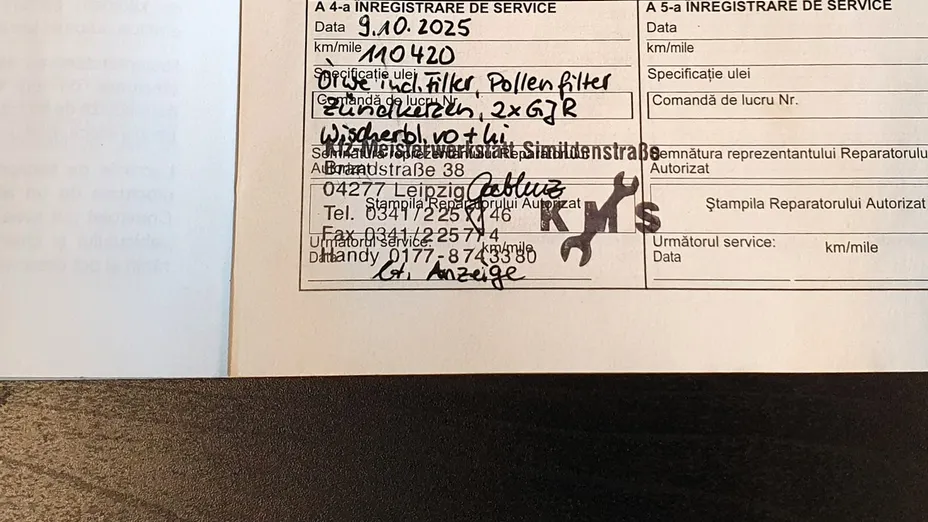 A 4-a ÎNREGISTRARE DE SERVICE
Data 9.10.2025
km/mile 110420
Specificație ulei
Ölwe incl. Filter, Pollenfilter
Comandă de lucru Nr.
Zündkerzen, 2x GJR
Wischerbl. vo + hi
Kfz-Meisterwerkstatt Simildenstraße
Semnătura reprezentantului Reparatorului
Autorizat
Brandstraße 38
04277 Leipzig
Ștampila Reparatorului Autorizat
KMS
Tel. 0341/225 46
Fax 0341/225 4
Următorul service:
Data km/mile
Handy 0177-8743380
lt. Anzeige
A 5-a ÎNREGISTRARE DE SERVICE
Data
km/mile
Specificație ulei
Comandă de lucru Nr.
Semnătura reprezentantului Reparatorului
Autorizat
Ștampila Reparatorului Autorizat
Următorul service:
Data km/mile